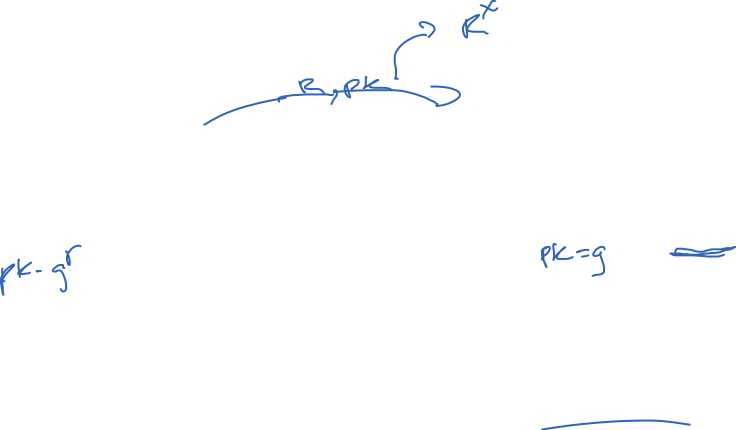 R^x
R, pk
pk = g
pk - g^r